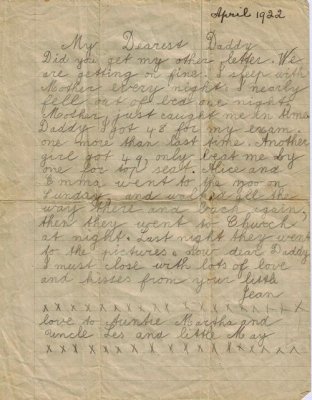 April 1922
My Dearest Daddy
Did you get my other letter. We
are getting on fine. I sleep with
Mother every night. I nearly
fell out of bed one night.
Mother, just caught me in time
Daddy I got 48 for my exam.
one more than last time. Another
girl got 49, only beat me by
one for top seat. Alice and
Emma went to the zoo on
Sunday and walked all the
way there and back again,
then they went to Church
at night. Last night they went
to the pictures. Now dear Daddy
I must close with lots of love
and kisses from your little
Jean
x x x x x x x x x x x x x x x x x
love to Auntie Martha and
uncle Les and little May
x x x x x x x x x x x x x x x x